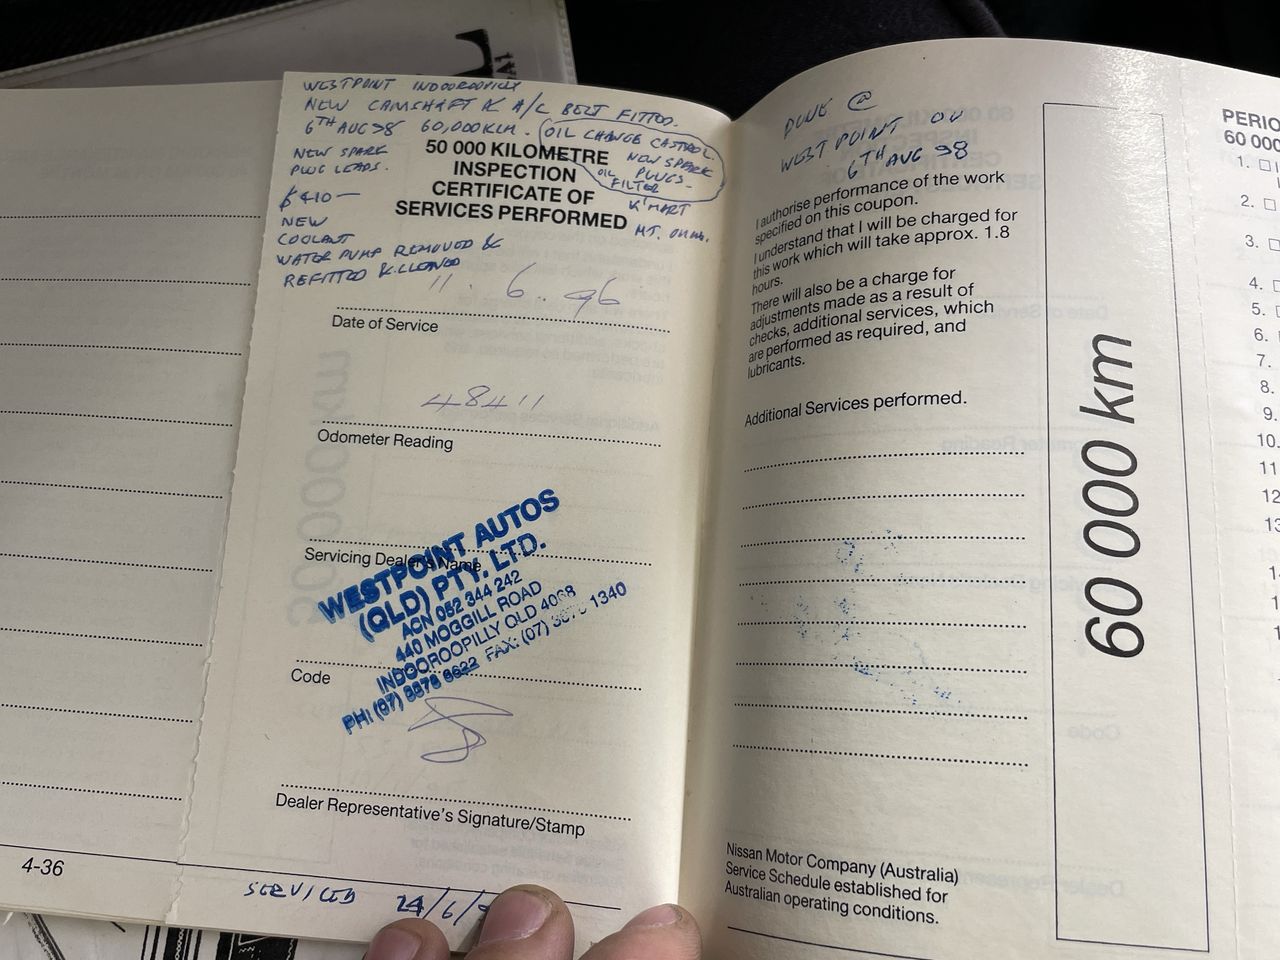 WESTPOINT INDOOROOPILLY
NEW CAMSHAFT & A/C BELT FITTED.
6TH AUG 98 60,000KLM. OIL CHANGE CASTROL.
NEW SPARK
PLUG LEADS.
NEW SPARK
PLUGS -
OIL
FILTER
K'MART
$410 —
NEW
COOLANT
WATER PUMP REMOVED &
REFITTED &
50 000 KILOMETRE
INSPECTION
CERTIFICATE OF
SERVICES PERFORMED
11. 6. 96
Date of Service
48411
Odometer Reading
Servicing Dealer's Name
WESTPOINT AUTOS
(QLD) PTY. LTD.
ACN 052 344 242
440 MOGGILL ROAD
INDOOROOPILLY QLD 4068
PH: (07) 3878 FAX: (07) 1340
Code
Dealer Representative's Signature/Stamp
4-36
SERVICED 24/6/
DONE @
WEST POINT ON
6TH AUG 98
I authorise performance of the work
specified on this coupon.
I understand that I will be charged for
this work which will take approx. 1.8
hours.
There will also be a charge for
adjustments made as a result of
checks, additional services, which
are performed as required, and
lubricants.
Additional Services performed.
Nissan Motor Company (Australia)
Service Schedule established for
Australian operating conditions.
60 000 km
60 000
1.
2.
3.
4.
5.
6.
7.
8.
9.
10.
11
12